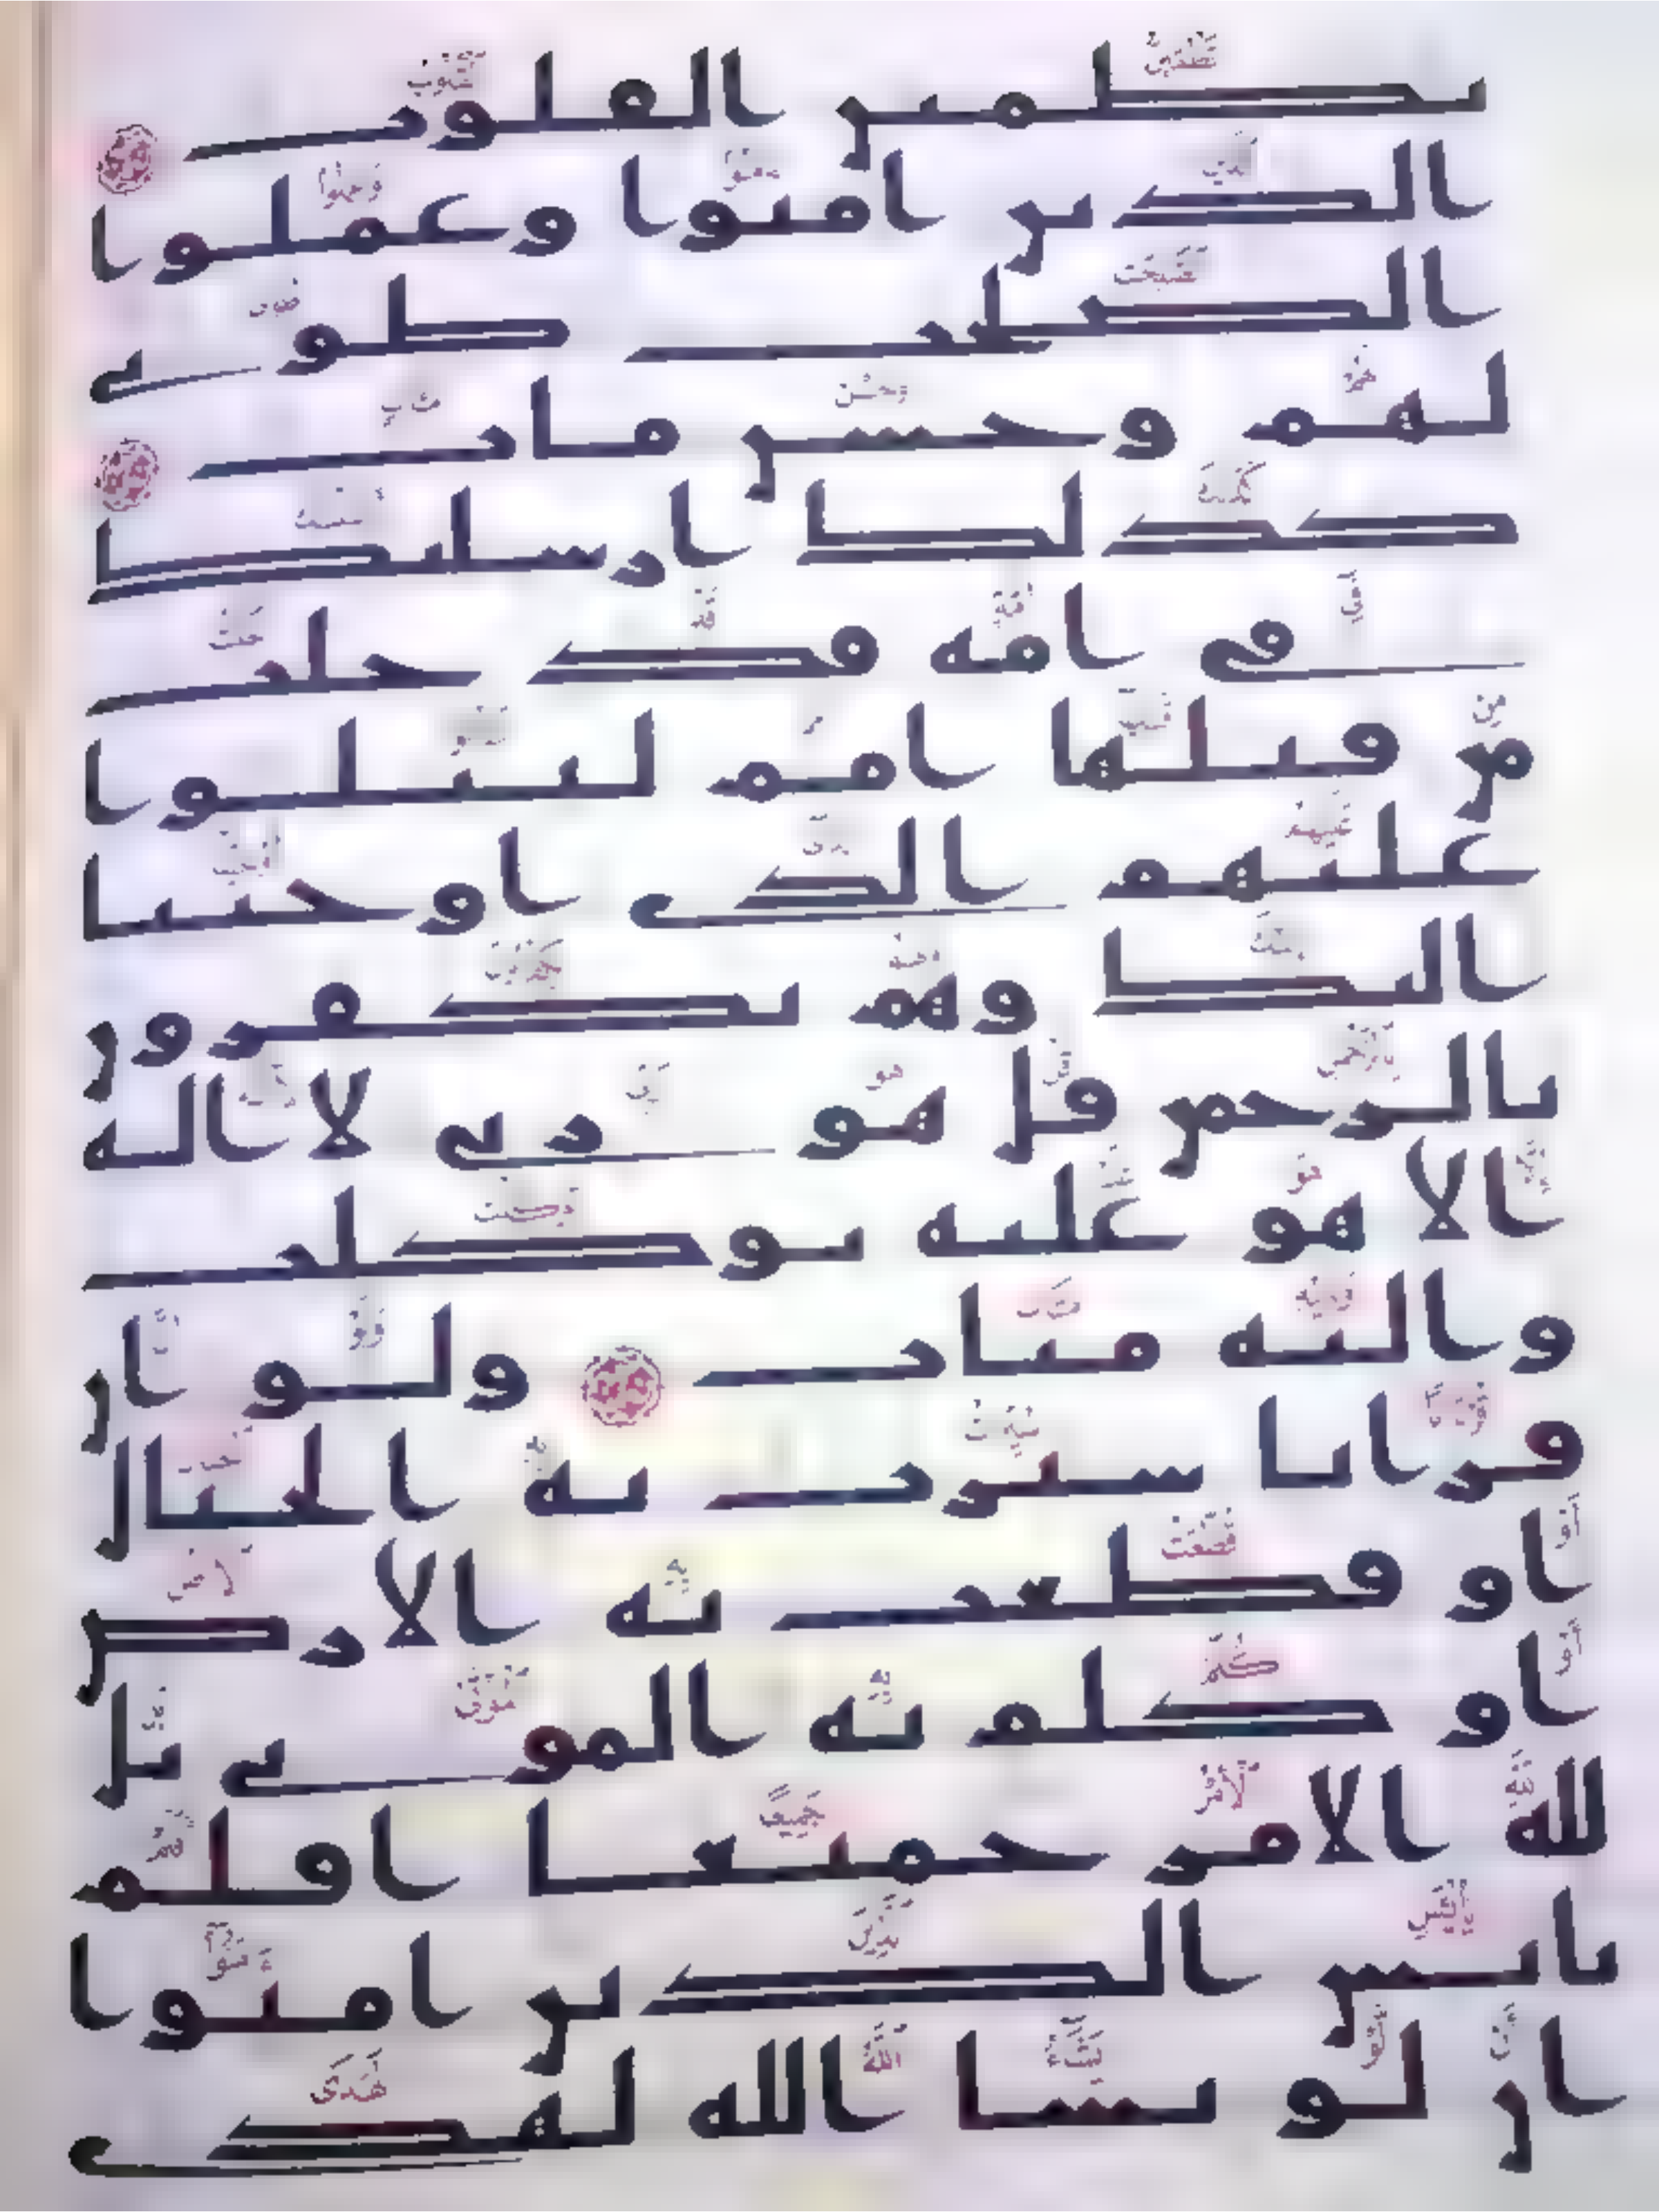 تطمئن القلوب
الذين امنوا وعملوا
الصلحت طوبى
لهم وحسن ماب
كذلك ارسلنك
فى امة قد خلت
من قبلها امم لتتلوا
عليهم الذى اوحينا
اليك وهم يكفرون
بالرحمن قل هو ربى لا اله
الا هو عليه توكلت
واليه متاب ولو ان
قرانا سيرت به الجبال
او قطعت به الارض
او كلم به الموتى بل
لله الامر جميعا افلم
يايس الذين امنوا
ان لو يشا الله لهدى